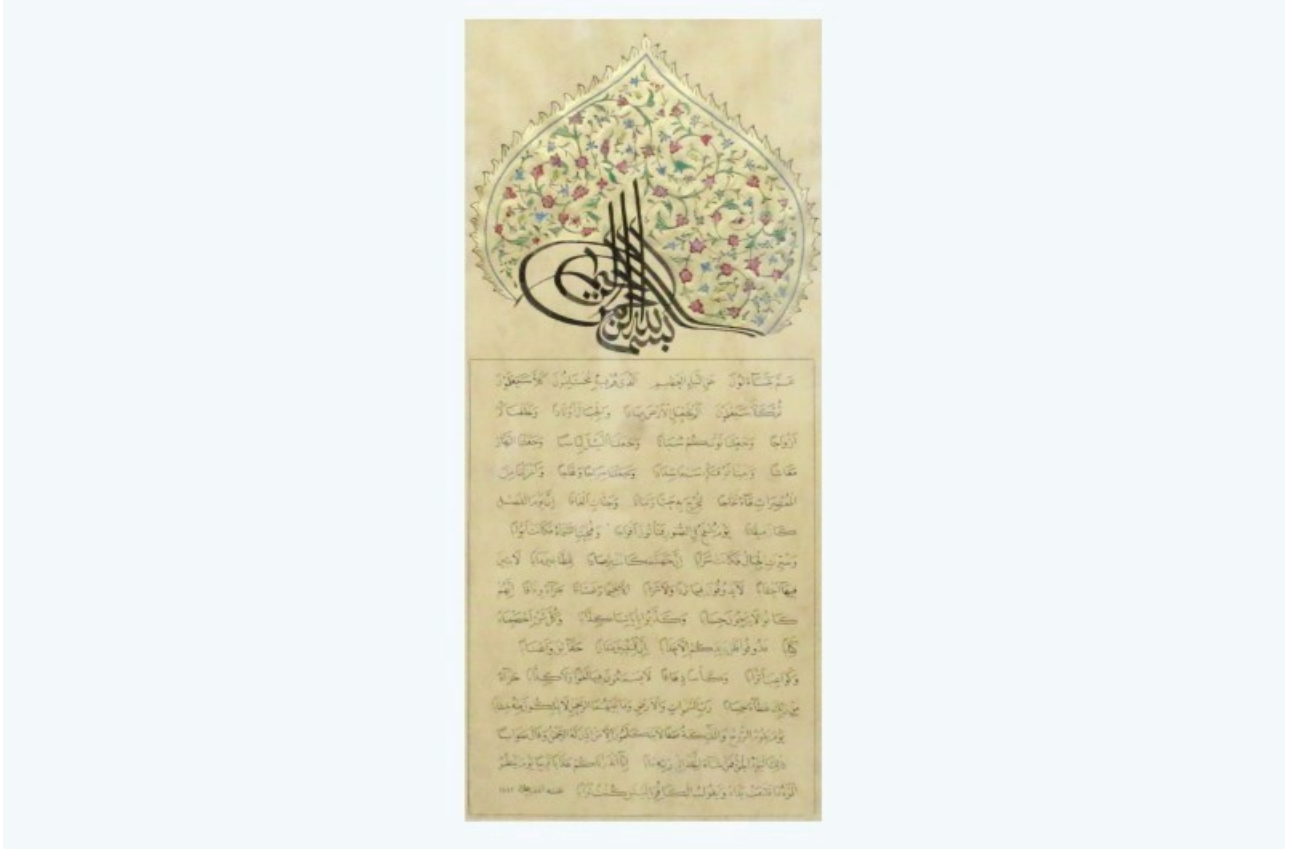 بسم الله الرحمن الرحيم
عم يتساءلون عن النبإ العظيم الذي هم فيه مختلفون كلا سيعلمون
ثم كلا سيعلمون ألم نجعل الأرض مهادا والجبال أوتادا وخلقناكم
أزواجا وجعلنا نومكم سباتا وجعلنا الليل لباسا وجعلنا النهار
معاشا وبنينا فوقكم سبعا شدادا وجعلنا سراجا وهاجا وأنزلنا من
المعصرات ماء ثجاجا لنخرج به حبا ونباتا وجنات ألفافا إن يوم الفصل
كان ميقاتا يوم ينفخ في الصور فتأتون أفواجا وفتحت السماء فكانت أبوابا
وسيرت الجبال فكانت سرابا إن جهنم كانت مرصادا للطاغين مآبا لابثين
فيها أحقابا لا يذوقون فيها بردا ولا شرابا إلا حميما وغساقا جزاء وفاقا إنهم
كانوا لا يرجون حسابا وكذبوا بآياتنا كذابا وكل شيء أحصيناه
كتابا فذوقوا فلن نزيدكم إلا عذابا إن للمتقين مفازا حدائق وأعنابا
وكواعب أترابا وكأسا دهاقا لا يسمعون فيها لغوا ولا كذابا جزاء
من ربك عطاء حسابا رب السموات والأرض وما بينهما الرحمن لا يملكون منه خطابا
يوم يقوم الروح والملئكة صفا لا يتكلمون إلا من أذن له الرحمن وقال صوابا
ذلك اليوم الحق فمن شاء اتخذ إلى ربه مآبا إنا أنذرناكم عذابا قريبا يوم ينظر
المرء ما قدمت يداه ويقول الكافر يا ليتني كنت ترابا